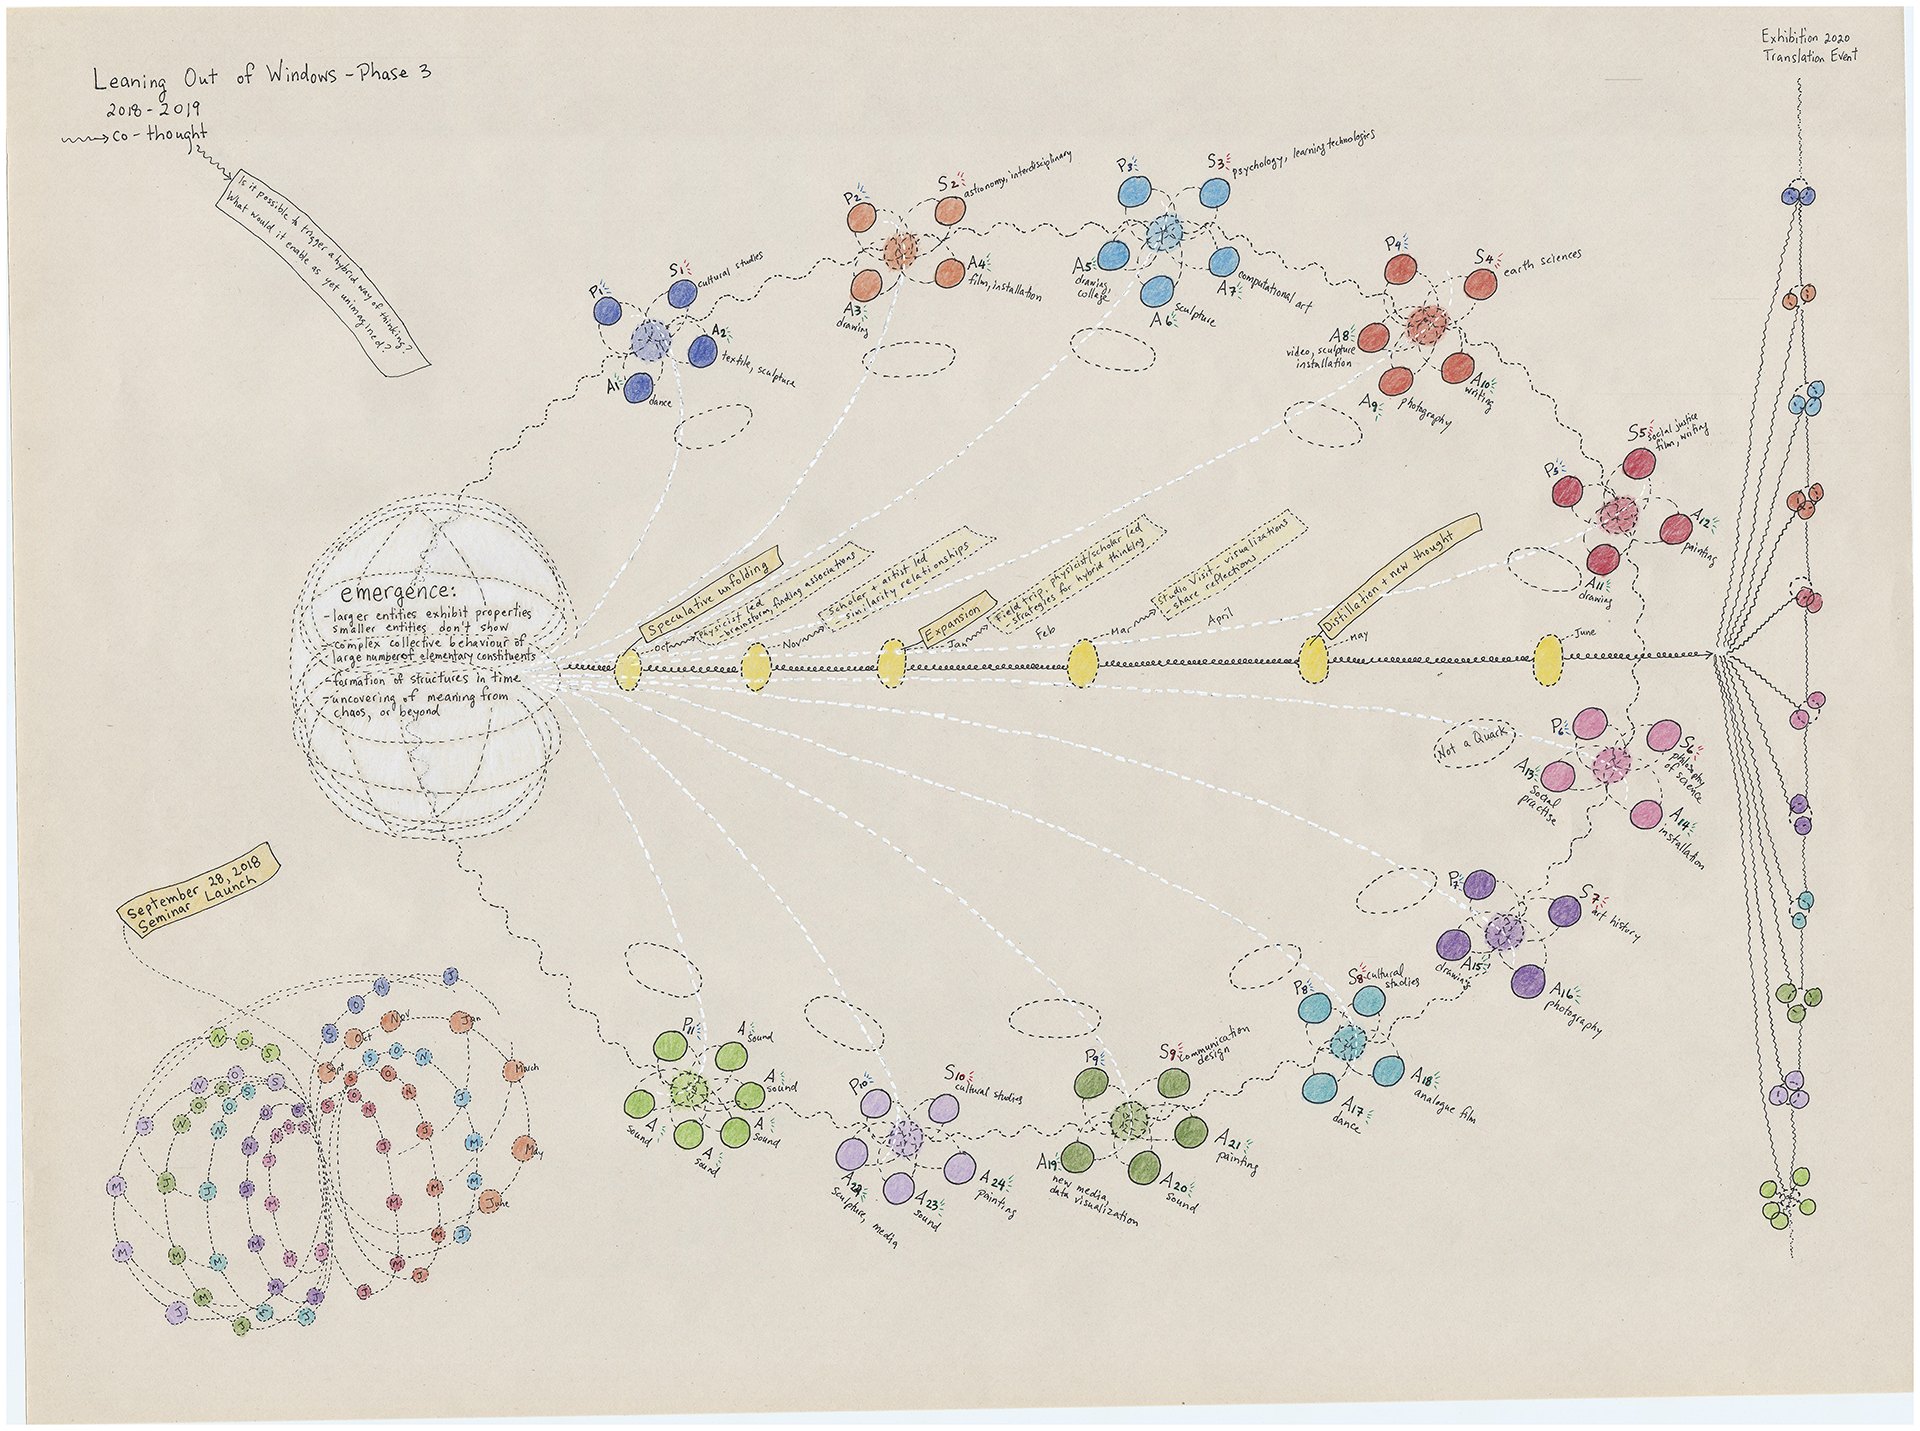 Leaning Out of Windows - Phase 3
2018 - 2019
co-thought
Is it possible to trigger a hybrid way of thinking?
What would it enable as yet unimagined?
Exhibition 2020
Translation Event
P1
S1
cultural studies
A2
textile, sculpture
A1
dance
P2
S2
astronomy, interdisciplinary
A4
film, installation
A3
drawing
P3
S3
psychology, learning technologies
A5
drawing,
collage
A7
computational art
A6
sculpture
P4
S4
earth sciences
A8
video, sculpture
installation
A10
writing
A9
photography
P5
S5
social justice
film, writing
A12
painting
A11
drawing
emergence:
- larger entities exhibit properties
smaller entities don't show
- complex collective behaviour of
large number of elementary constituents
- formation of structures in time
- uncovering of meaning from
chaos, or beyond
Speculative unfolding
Oct
physicist led
brainstorm, finding associations
Nov
Scholar + artist led
similarity relationships
Expansion
Jan
Field trip, physicist/scholar led
strategies for hybrid thinking
Feb
Mar
Studio Visit - visualizations
- share reflections
April
Distillation + new thought
May
June
Not a Quark
P6
S6
philosophy
of science
A13
social
practise
A14
installation
P7
S7
art history
A15
drawing
A16
photography
P8
S8
cultural
studies
A17
dance
A18
analogue film
P9
S9
communication
design
A19
new media,
data visualization
A20
sound
A21
painting
P10
S10
cultural studies
A22
sculpture, media
A23
sound
A24
painting
P11
A
sound
A
sound
A
sound
A
sound
A
sound
September 28, 2018
Seminar Launch
S
O
N
J
Sept
Oct
Nov
Jan
March
May
June
S
O
N
J
M
M
J
N
O
S